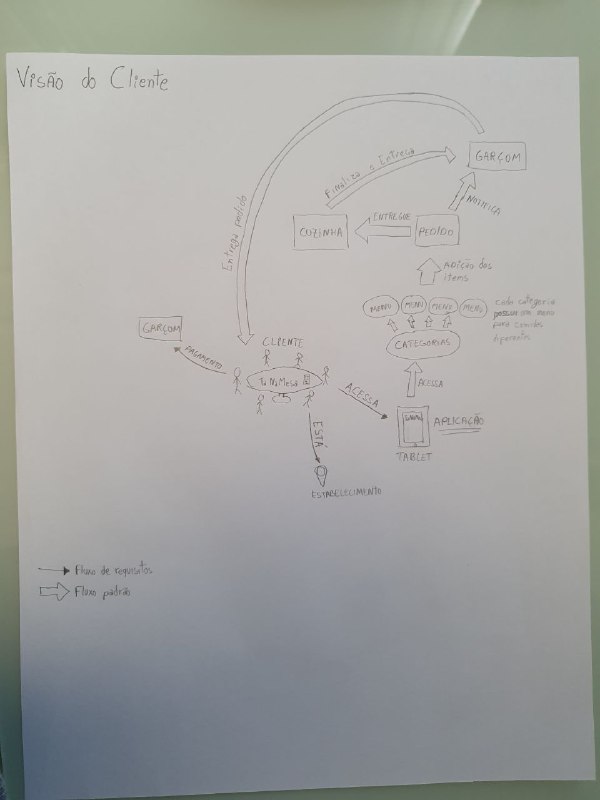 Visão do Cliente
GARÇOM
Finaliza e Entrega
NOTIFICA
Entrega pedido
COZINHA
ENTREGUE
PEDIDO
Adição dos
items
MENU
MENU
MENU
MENU
cada categoria
possui um menu
para comidas
CATEGORIAS
GARÇOM
PAGAMENTO
CLIENTE
Tá Na Mesa
ACESSA
ACESSA
APLICAÇÃO
TABLET
ESTÁ
ESTABELECIMENTO
Fluxo de requisitos
Fluxo padrão